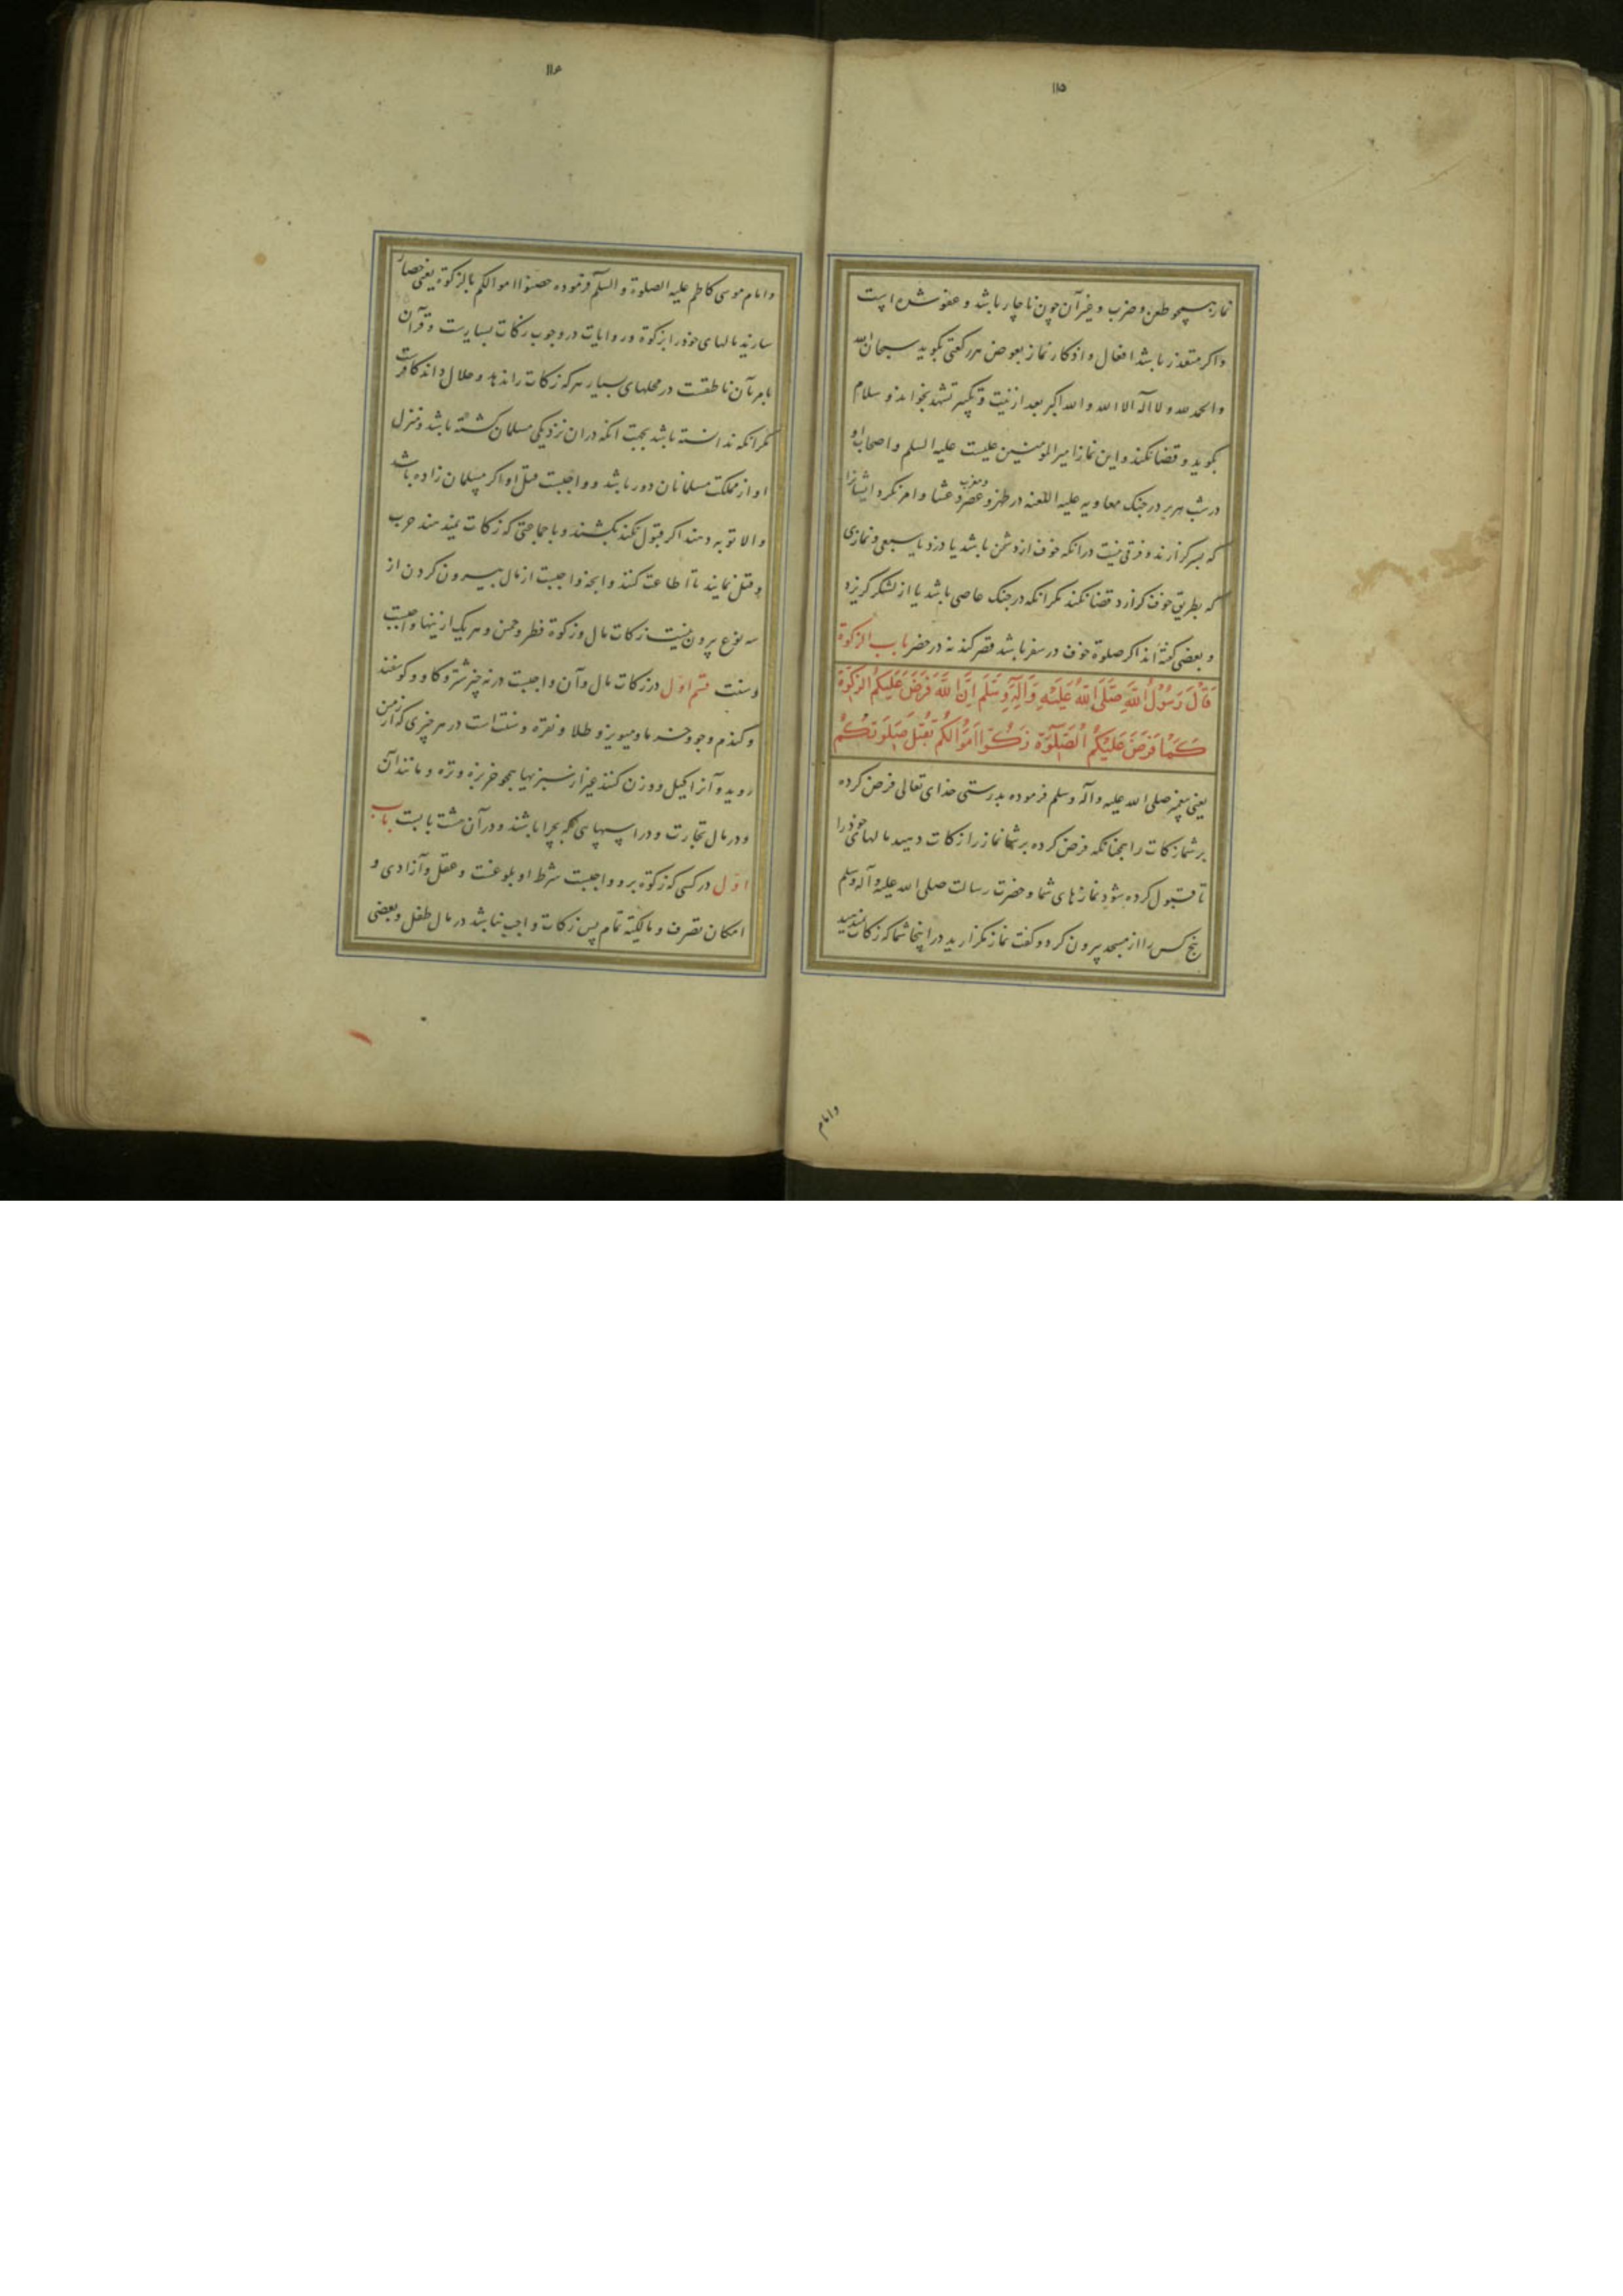 ۱۱۵
نماز همچو طعن و ضرب و غیر آن چون ناچار باشد و عفو شده است
واکر متعذر باشد افعال و اذکار نماز بعوض هر رکعتی بکوید سبحان الله
والحمد لله ولا اله الا الله والله اکبر بعد از نیت و تکبیر تشهد بخواند و سلام
بکوید و قضا نکند و این نماز امیر المومنین علیست علیه السلم و اصحاب او
در شب هریر در جنک معاویه علیه اللعنه در ظهر و عصر و مغرب و عشا و امر نکرد ایشانرا
که بسر کزارند و فرقی نیست در انکه خوف از دشمن باشد یا دزد یا سبعی و نمازی
که بطریق خوف کزارد قضا نکند مکر انکه در جنک عاصی باشد یا از لشکر کریزد
و بعضی کفته اند اکر صلوة خوف در سفر باشد قصر کند نه در حضر باب الزکوة
قَالَ رَسُولُ اللهِ صَلَّى اللهُ عَلَيْهِ وَآلِهِ وَسَلَّمَ اِنَّ اللهَ فَرَضَ عَلَيْكُمُ الزَّكوةَ
كَمَا فَرَضَ عَلَيْكُمُ الصَّلوةَ زَكُّوا اَمْوَالَكُمْ تُقْبَلْ صَلَوتُكُمْ
یعنی پیغمبر صلی الله علیه وآله وسلم فرموده بدرستی خدای تعالی فرض کرده
بر شما زکات را همچنانکه فرض کرده بر شما نماز را زکات دهید مالهای خود را
تا قبول کرده شود نمازهای شما و حضرت رسالت صلی الله علیه وآله وسلم
پنج کس را از مسجد بیرون کرد و کفت نماز مکزارید در اینجا شما که زکات ندهید
وامام
۱۱۶
وامام موسی کاظم علیه الصلوة والسلم فرموده حصنوا اموالکم بالزکوة یعنی حصار
سازید مالهای خود را بزکوة و روایات در وجوب زکات بسیارست و قرآن
بامر بآن ناطقست در محلهای بسیار هر که زکات را ندهد و حلال داند کافرست
مکر انکه ندانسته باشد بجهت انکه در ان نزدیکی مسلمان کشته باشد و منزل
او از مملکت مسلمانان دور باشد و واجبست قتل او اکر مسلمان زاده باشد
والا توبه دهند اکر قبول نکند بکشند و با جماعتی که زکات نمیدهند حرب
و قتل نمایند تا اطاعت کنند و انچه واجبست از مال بیرون کردن از
سه نوع بیرون نیست زکات مال و زکوة فطر و خمس و هر یک از ینها واجبست
و سنت قسم اول در زکات مال و آن واجبست در نه چیز شتر و کاو و کوسفند
و کندم و جو و خرما و میویز و طلا و نقره و سنت است در هر چیزی که از زمین
روید و آنرا کیل و وزن کنند غیر از سبزیها همچو خربزه و تره و مانند آن
و در مال تجارت و در اسبهای که بچرا باشند و در آن هشت بابست باب
اول در کسی که زکوة برو واجبست شرط او بلوغست و عقل و آزادی و
امکان تصرف و مالکیته تمام پس زکات واجب نباشد در مال طفل و بعضی